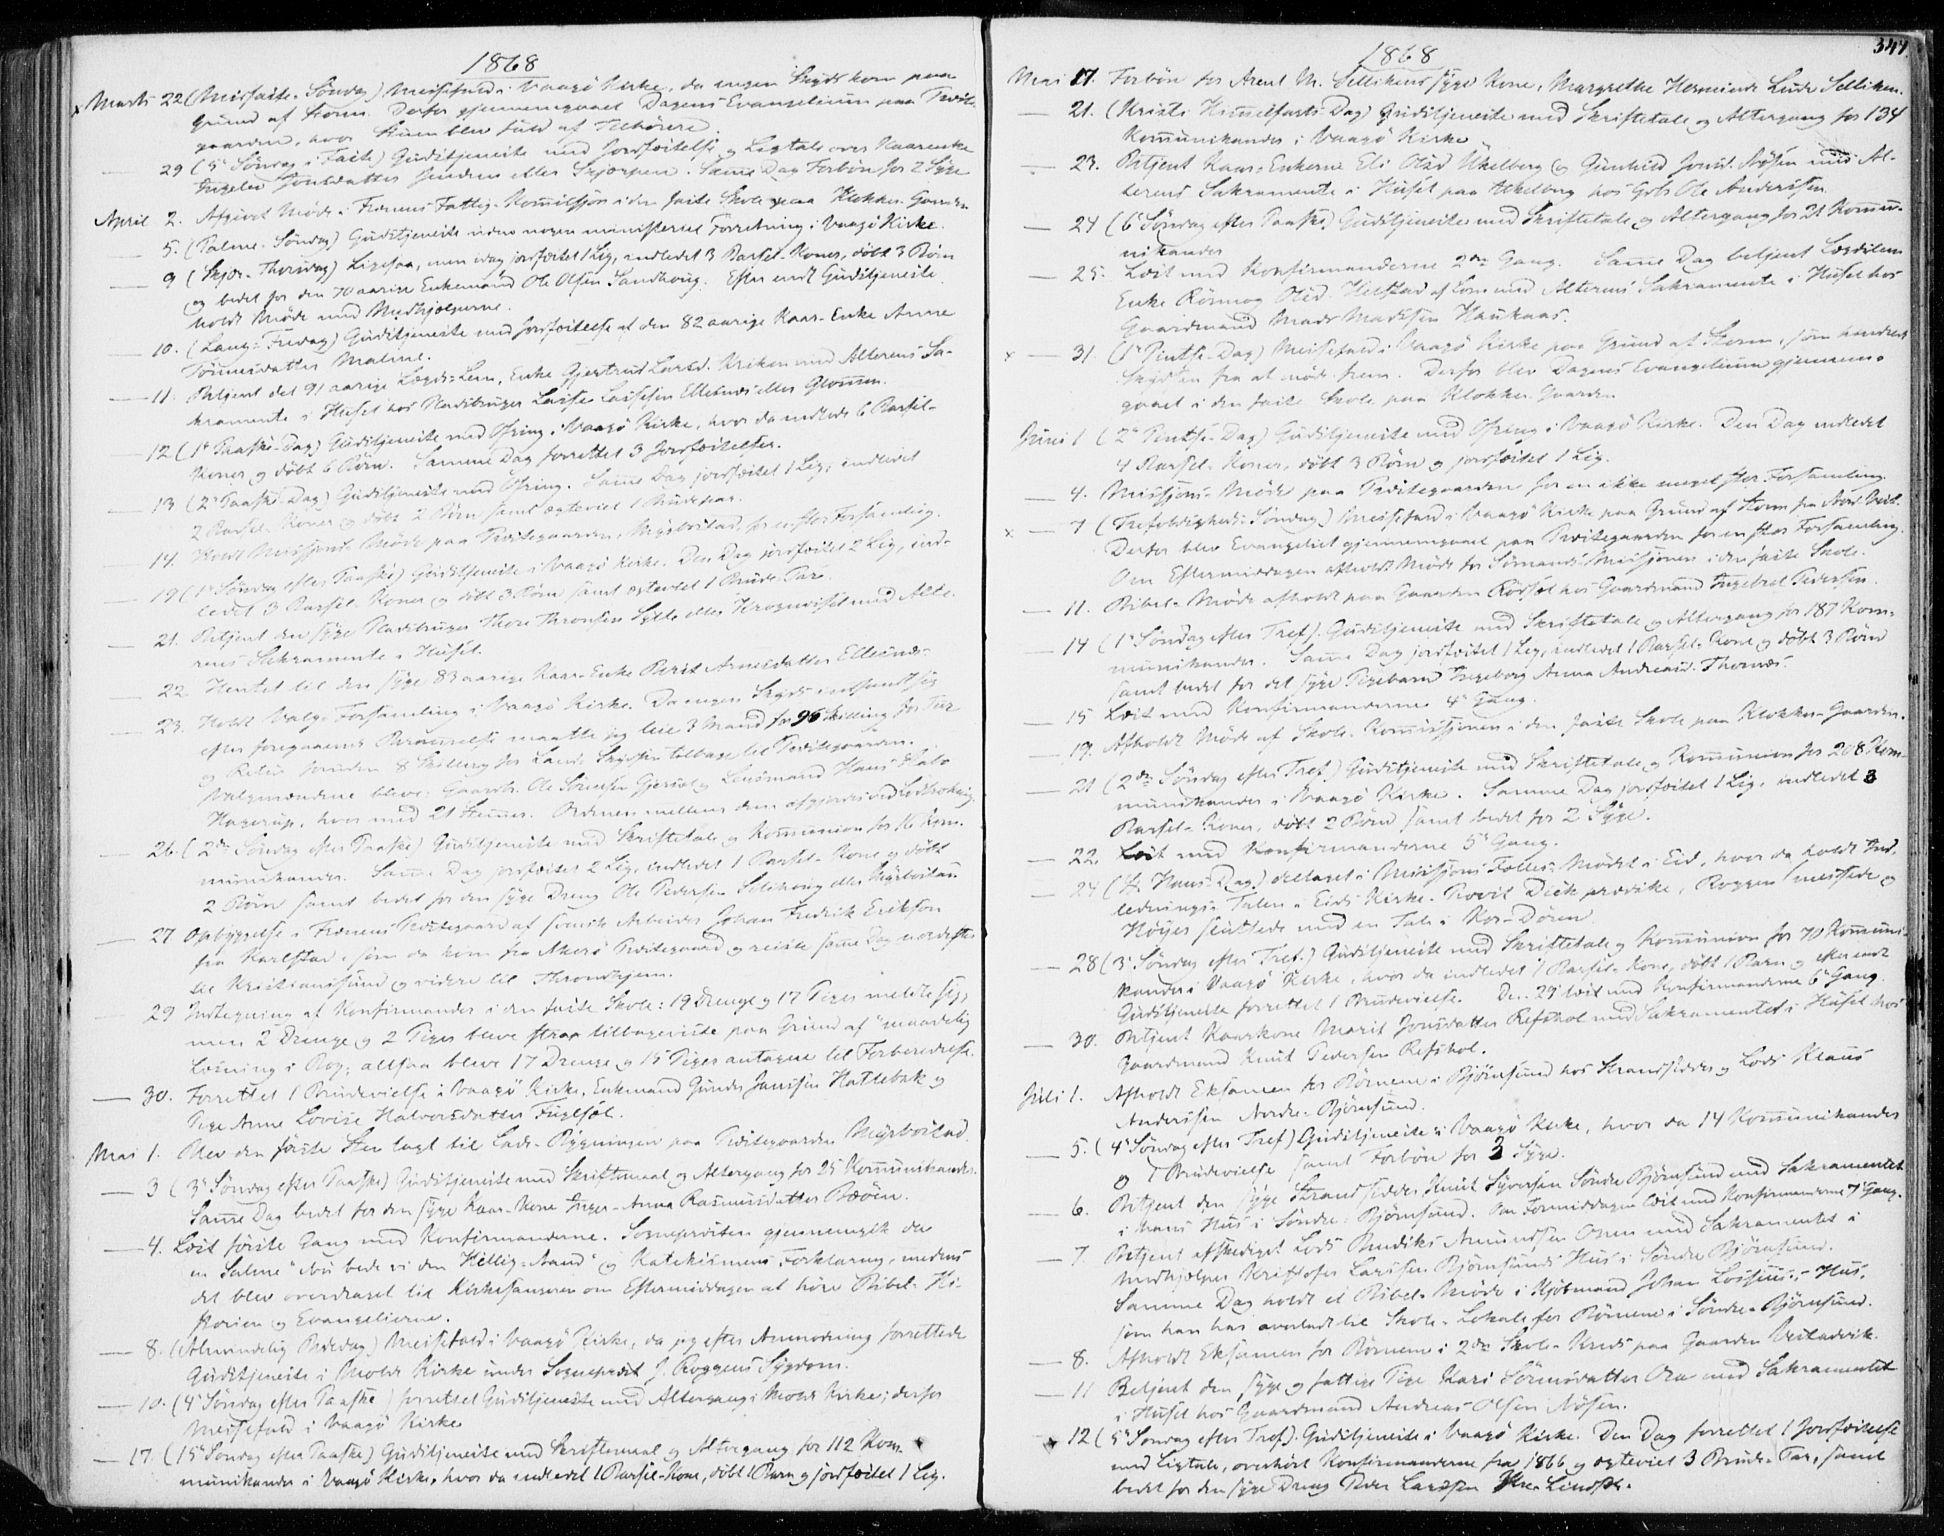 1868
Marts 22 (Midfaste-Søndag) Messefald i Vaagø Kirke, da ingen Skyds kom paa
Grund af Storm. Derfor gjennemgaaet Dagens Evangelium paa Præste-
gaarden, hvor Stuen blev fuld af Tilhørere.
— 29 (5te Søndag i Faste) Gudstjeneste med Jordfæstelse og Ligtale over Kaarenke
Ingelev Jonsdatter eller Skjorpen. Samme Dag Forbøn for 2 Syge
April 2. Afgivet Møde i Frænens Fattig-Kommission i den faste Skole paa Klokker-Gaarden
5. (Palme-Søndag) Gudstjeneste uden nogen ministeriel Forretning i Vaagø Kirke.
— 9 (Skjær-Thorsdag) Ligesaa, men idag jordfæstet 1 Lig, indledet 3 Barsel-Koner, døbt 3 Børn
og bedet for den 70 aarige Enkemand Ole Olsen Sandhoug. Efter endt Gudstjeneste
holdt Møde med Medhjælperne.
— 10. (Lang-Fredag) Gudstjeneste med Jordfæstelse af den 82 aarige Kaar-Enke Anne
Tønnesdatter Malme.
— 11. Betjent det 91 aarige Lægds-Lem, Enke Gjertrud Larsd. Kriken med Alterens Sa-
kramente i Huset hos Nedsbruger Lasse Lassesen Ellesnæs eller Glommen.
— 12 (1ste Paaske-Dag) Gudstjeneste med Ofring i Vaagø Kirke, hvor da indledt 6 Barsel-
Koner og døbt 6 Børn. Samme Dag forrettet 3 Jordfæstelser.
— 13 (2den Paaske-Dag) Gudstjeneste med Ofring. Samme Dag jordfæstet 1 Lig, indledet
2 Barsel-Koner og døbt 2 Børn samt ægteviet 1 Brudepar.
14. Holdt Missions-Møde paa Præstegaarden, Myrbostad, for en stor Forsamling.
— 19 (1ste Søndag efter Paaske) Gudstjeneste i Vaagø Kirke. Den Dag jordfæstet 2 Lig, ind-
ledet 3 Barsel-Koner og døbt 3 Børn samt ægteviet 1 Brude-Par.
— 21. Betjent den syge Nedsbruger Thore Thronsen Sylte eller med Alte-
rens Sakramente i Huset.
— 22. Hentet til den syge 83 aarige Kaar-Enke Berit Arnesdatter Ellesnæs.
— 23. Holdt Valg-Forsamling i Vaagø Kirke. Da ingen Skyds indfandt sig
efter foregaaende Berammelse maatte jeg leie 3 Mand for 96 Skilling for Tur
og Retur foruden 8 Skilling for Land-Skydsen tilbage til Præstegaarden.
Valgmændene bleve: Gaardbr. Ole Gjersvig og Lensmand Hans
Hagerup, hver med 21 Stemmer. Ordenen mellem dem afgjordes ved Lodtrækning.
— 26. (2den Søndag efter Paaske) Gudstjeneste med Skriftetale og Kommunion for 16 Kom-
munikander. Samme Dag jordfæstet 2 Lig, indledet 1 Barsel-Kone og døbt
2 Børn samt bedet for den syge Dreng Ole Pedersen eller Myrbostad
— 27 Opbyggelse i Frænens Præstegaard af svensk Arbeider Johan Fredrik Erikson
fra Karlstad, som da kom fra Akerø Præstegaard og reiste samme Dag
til Kristianssund og videre til Throndhjem.
29 Indtegning af Konfirmander i den faste Skole: 19 Drenge og 17 Piger meldte sig;
men 2 Drenge og 2 Piger bleve strax tilbageviste paa Grund af "maadelig
Læsning i Bog; altsaa bleve 17 Drenge og 15 Piger antagne til Forberedelse.
— 30. Forrettet 1 Brudevielse i Vaagø Kirke, Enkemand Gunder Janssen Hattebak og
Pige Anne Lovise Halvorsdatter Fuglset.
Mai 1. Blev den første Sten lagt til Lade-Bygningen paa Præstegaarden Myrbostad.
— 3 (3die Søndag efter Paaske) Gudstjeneste med Skriftemaal og Altergang for 25 Kommunikander.
Samme Dag bedet for den syge Kaar-Kone Inger-Anna Rasmusdatter Bøen.
— 4. Læst første Gang med Konfirmanderne. Sognepræsten gjennemgik da
en Salme "Nu bede vi den Hellig-Aand" og Katekismens Forklaring, medens
det blev overdraget til Kirkesangeren om Eftermiddagen at høre Bibel-Hi-
storien og Evangelierne.
— 8. (Almindelig Bededag) Messefald i Vaagø Kirke, da jeg efter Anmodning forrettede
Gudstjeneste i Molde Kirke under Sognepræst J. Roggens Sygdom.
— 10. (4de Søndag efter Paaske) forrettet Gudstjeneste med Altergang i Molde Kirke; derfor
Messefald i Vaagø Kirke
— 17 (15te Søndag efter Paaske) Gudstjeneste med Skriftemaal og Altergang for 112 Kom-
munikander i Vaagø Kirke, hvor da indledet 1 Barsel-Kone, døbt 1 Barn og jordfæstet 1 Lig.
347.
1868
Mai 17. Forbøn for Arent M. Sellikens syge Kone, Margrethe Hermine Selliken.
— 21. (Kristi Himmelfarts-Dag) Gudstjeneste med Skriftetale og Altergang for 134
Kommunikander i Vaagø Kirke
— 23. Betjent Kaar-Enkerne Eli Olsd Ukelberg og Gunhild Jonsd. Nøsen med Al-
terens Sakramente i Huset paa Ukelberg hos Grbr Ole Anderssen.
— 24 (6te Søndag efter Paaske) Gudstjeneste med Skriftetale og Altergang for 21 Kommu-
nikander
— 25. Læst med Konfirmanderne 2den Gang. Samme Dag betjent Lægdslem
Enke Rønnog Olsd. Helstad af med Alterens Sakramente i Huset hos
Gaardmand Mads Madssen Haukaas.
x — 31. (1ste Pintse-Dag) Messefald i Vaagø Kirke paa Grund af Storm, som hindrede
Skydsen fra at møde frem. Derfor blev Dagens Evangelium gjennem-
gaaet i den faste Skole paa Klokker-Gaarden
Juni 1 (2den Pintse-Dag) Gudstjeneste med Ofring i Vaagø Kirke. Den Dag indledet
4 Barsel-Koner, døbt 3 Børn og jordfæstet 1 Lig.
— 4. Missions-Møde paa Præstegaarden for en ikke meget stor Forsamling.
x — 7 (Trefoldigheds-Søndag) Messefald i Vaagø Kirke paa Grund af Storm fra Nord Vest.
Derfor blev Evangeliet gjennemgaaet paa Præstegaarden for en stor Forsamling.
Om Eftermiddagen afholdt Møde for Sømands-Missionen i den faste Skole.
— 11. Bibel-Møde afholdt paa Gaarden Rødset hos Gaardmand Ingebret Pedersen.
— 14 (1ste Søndag efter Tref). Gudstjeneste med Skriftetale og Altergang for 187 Kom-
munikander. Samme Dag jordfæstet 1 Lig, indledet 1 Barsel-Kone og døbt 3 Børn
samt bedet for det syge Pigebarn Ingeborg Anna Andreasd. Thornæs.
— 15 Læst med Konfirmanderne 4de Gang.
— 19. Afholdt Møde af Skole-Kommissionen i den faste Skole paa Klokker-Gaarden.
— 21 (2den Søndag efter Tref) Gudstjeneste med Skriftetale og Kommunion for 208 Kom-
munikander i Vaagø Kirke. Samme Dag jordfæstet 1 Lig, indledet 3
Barsel-Koner, døbt 2 Børn samt bedet for 2 Syge.
— 22. Læst med Konfirmanderne 5te Gang.
— 24 (St. Hans-Dag) deltaget i Missions Fælles-Mødet i Eid, hvor da holdt Ind-
lednings-Talen i Eids Kirke. Provst Deck prædike, Roggen messede og
Høyer sluttede med en Tale i Kor-Døren.
— 28 (3die Søndag efter Tref.) Gudstjeneste med Skriftetale og Kommunion for 70 Kommuni-
kander i Vaagø Kirke, hvor da indledet 1 Barsel-Kone, døbt 1 Barn og efter endt
Gudstjeneste forrettet 1 Brudevielse. Den 29 læst med Konfirmanderne 6te Gang.
— 30. Betjent Kaarkone Marit Jonsdatter Refshol med Sakramentet i Huset hos
Gaardmand Knut Pedersen Refshol.
Juli 1. Afholdt Eksamen for Børnene i Bjørnsund hos Strandsidder og Lods Klaus
Anderssen Nordre-Bjørnsund.
— 5. (4de Søndag efter Tref) Gudstjeneste i Vaagø Kirke, hvor da 14 Kommunikander
og 1 Brudevielse samt Forbøn for 3 Syge.
— 6. Betjent den syge Strandsidder Knut Syversen Søndre Bjørnsund med Sakramentet
i hans Hus i Søndre Bjørnsund. Om Formiddagen læst med Konfirmanderne 7de Gang.
— 7. Betjent afskediget Lods Bendiks Amundsen Onen med Sakramentet i
Medhjælper Kristofer Larssen Bjørnsunds Hus i Søndre Bjørnsund.
Samme Dag holdt et Bibel-Møde i Kjøbmand Johan Hus,
som han har overladt til Skole-Lokale for Børnene i Søndre-Bjørnsund.
— 8. Afholdt Eksamen for Børnene i 2den Skole-Kreds paa Gaarden Vestadvik.
— 11 Betjent den syge og fattige Pige Kari Sørensdatter Ora med Sakramentet
i Huset hos Gaardmand Andreas Olsen Nøsen.
— 12 (5te Søndag efter Tref). Gudstjeneste i Vaagø Kirke. Den Dag forrettet 1 Jordfæstelse
med Ligtale, overhørt Konfirmanderne fra 1866 og ægteviet 3 Brude-Par, samt
bedet for den syge Dreng Peder Larssen